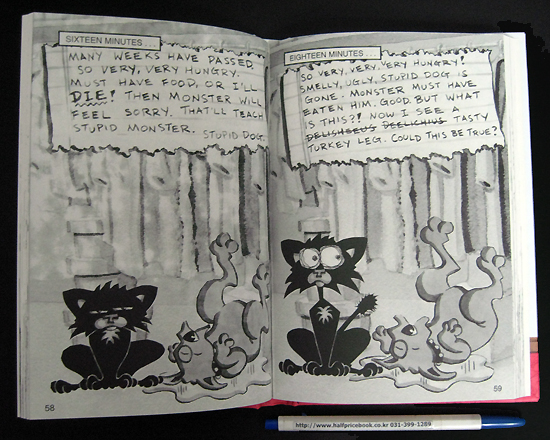 SIXTEEN MINUTES...
MANY WEEKS HAVE PASSED.
SO VERY, VERY HUNGRY.
MUST HAVE FOOD, OR I'LL
DIE! THEN MONSTER WILL
FEEL SORRY. THAT'LL TEACH
STUPID MONSTER. STUPID DOG.
58
EIGHTEEN MINUTES...
SO VERY, VERY, VERY HUNGRY!
SMELLY, UGLY, STUPID DOG IS
GONE. MONSTER MUST HAVE
EATEN HIM. GOOD. BUT WHAT
IS THIS?! NOW I SEE A
DELISHEEUS DEELICHIUS TASTY
TURKEY LEG. COULD THIS BE TRUE?
59
http://www.halfpricebook.co.kr 031-399-1289